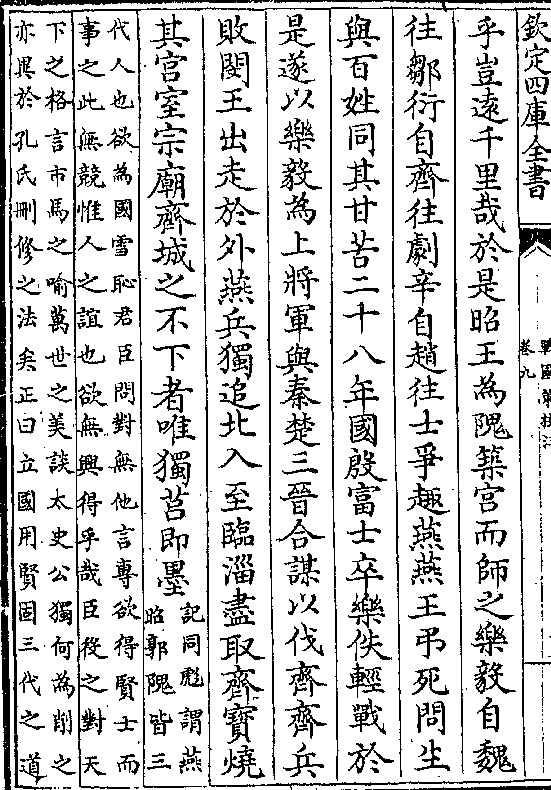 欽定四庫全書
戰國策校注
卷九
乎豈遠千里哉於是昭王為隗築宮而師之樂毅自魏
往鄒衍自齊往劇辛自趙往士爭趣燕燕王弔死問生
與百姓同其甘苦二十八年國殷富士卒樂佚輕戰於
是遂以樂毅為上將軍與秦楚三晉合謀以伐齊齊兵
敗閔王出走於外燕兵獨追北入至臨淄盡取齊寶燒
其宮室宗廟齊城之不下者唯獨莒即墨
記同彪謂燕
昭郭隗皆三
代人也欲為國雪恥君臣問對無他言專欲得賢士而
事之此無競惟人之誼也欲無興得乎哉臣役之對天
下之格言市馬之喻萬世之美談太史公獨何為削之
亦異於孔氏刪修之法矣正曰立國用賢固三代之道